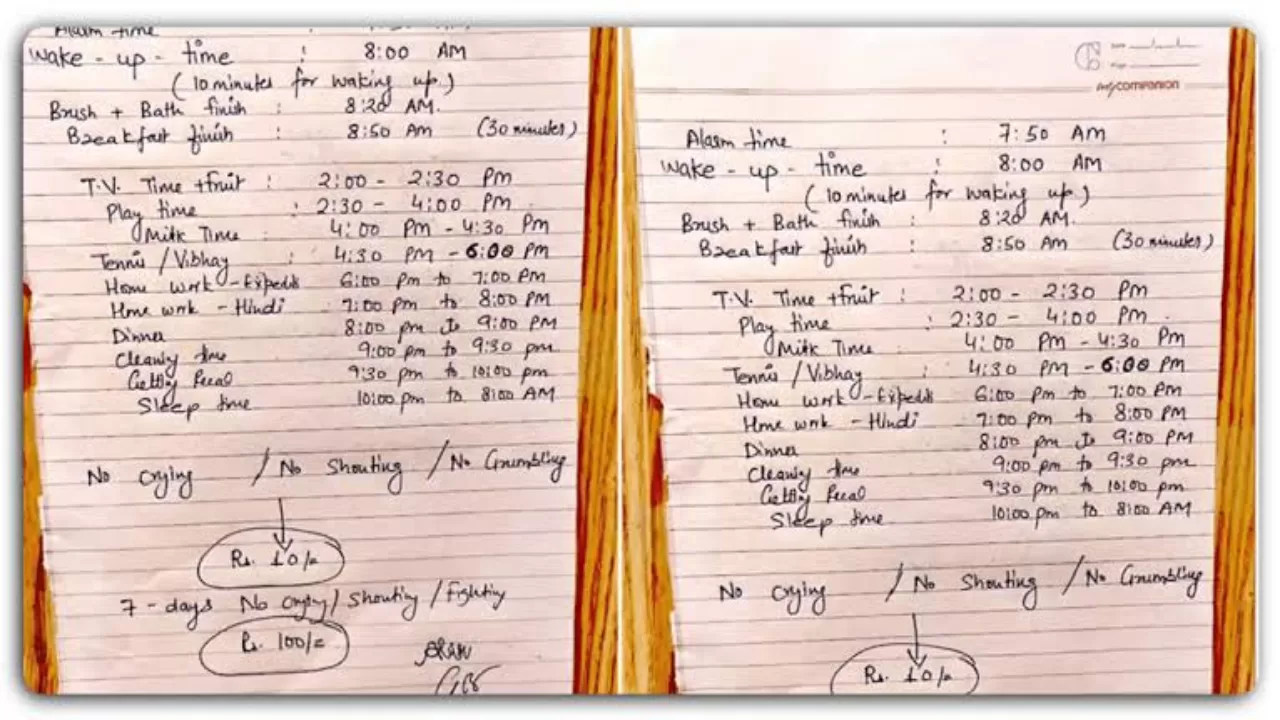 Alarm time
Wake - up - time : 8:00 AM
(10 minutes for waking up.)
Brush + Bath finish : 8:20 AM.
Breakfast finish : 8:50 AM (30 minutes)
T.V. Time +fruit : 2:00 - 2:30 PM
Play time : 2:30 - 4:00 PM.
Milk Time : 4:00 PM - 4:30 PM
Tennis / Vibhay : 4:30 PM - 6:00 PM
Home work - 6:00 Pm to 7:00 PM
Home work - Hindi 7:00 pm to 8:00 PM
Dinner 8:00 pm to 9:00 PM
Cleaning time 9:00 pm to 9:30 pm
Getting 9:30 pm to 10:00 pm
Sleep time 10:00 pm to 8:00 AM
No Crying / No Shouting / No Grumbling
Rs. 10/=
7 - days No crying / Shouting / Fighting
Rs. 100/=
Date
Page
mycompanion
Alarm time : 7:50 AM
Wake - up - time : 8:00 AM
(10 minutes for waking up.)
Brush + Bath finish : 8:20 AM.
Breakfast finish : 8:50 AM (30 minutes)
T.V. Time +fruit : 2:00 - 2:30 PM
Play time : 2:30 - 4:00 PM.
Milk Time : 4:00 PM - 4:30 PM
Tennis / Vibhay : 4:30 PM - 6:00 PM
Home work - 6:00 Pm to 7:00 PM
Home work - Hindi 7:00 pm to 8:00 PM
Dinner 8:00 pm to 9:00 PM
Cleaning time 9:00 pm to 9:30 pm
Getting 9:30 pm to 10:00 pm
Sleep time 10:00 pm to 8:00 AM
No Crying / No Shouting / No Grumbling
Rs. 10/=